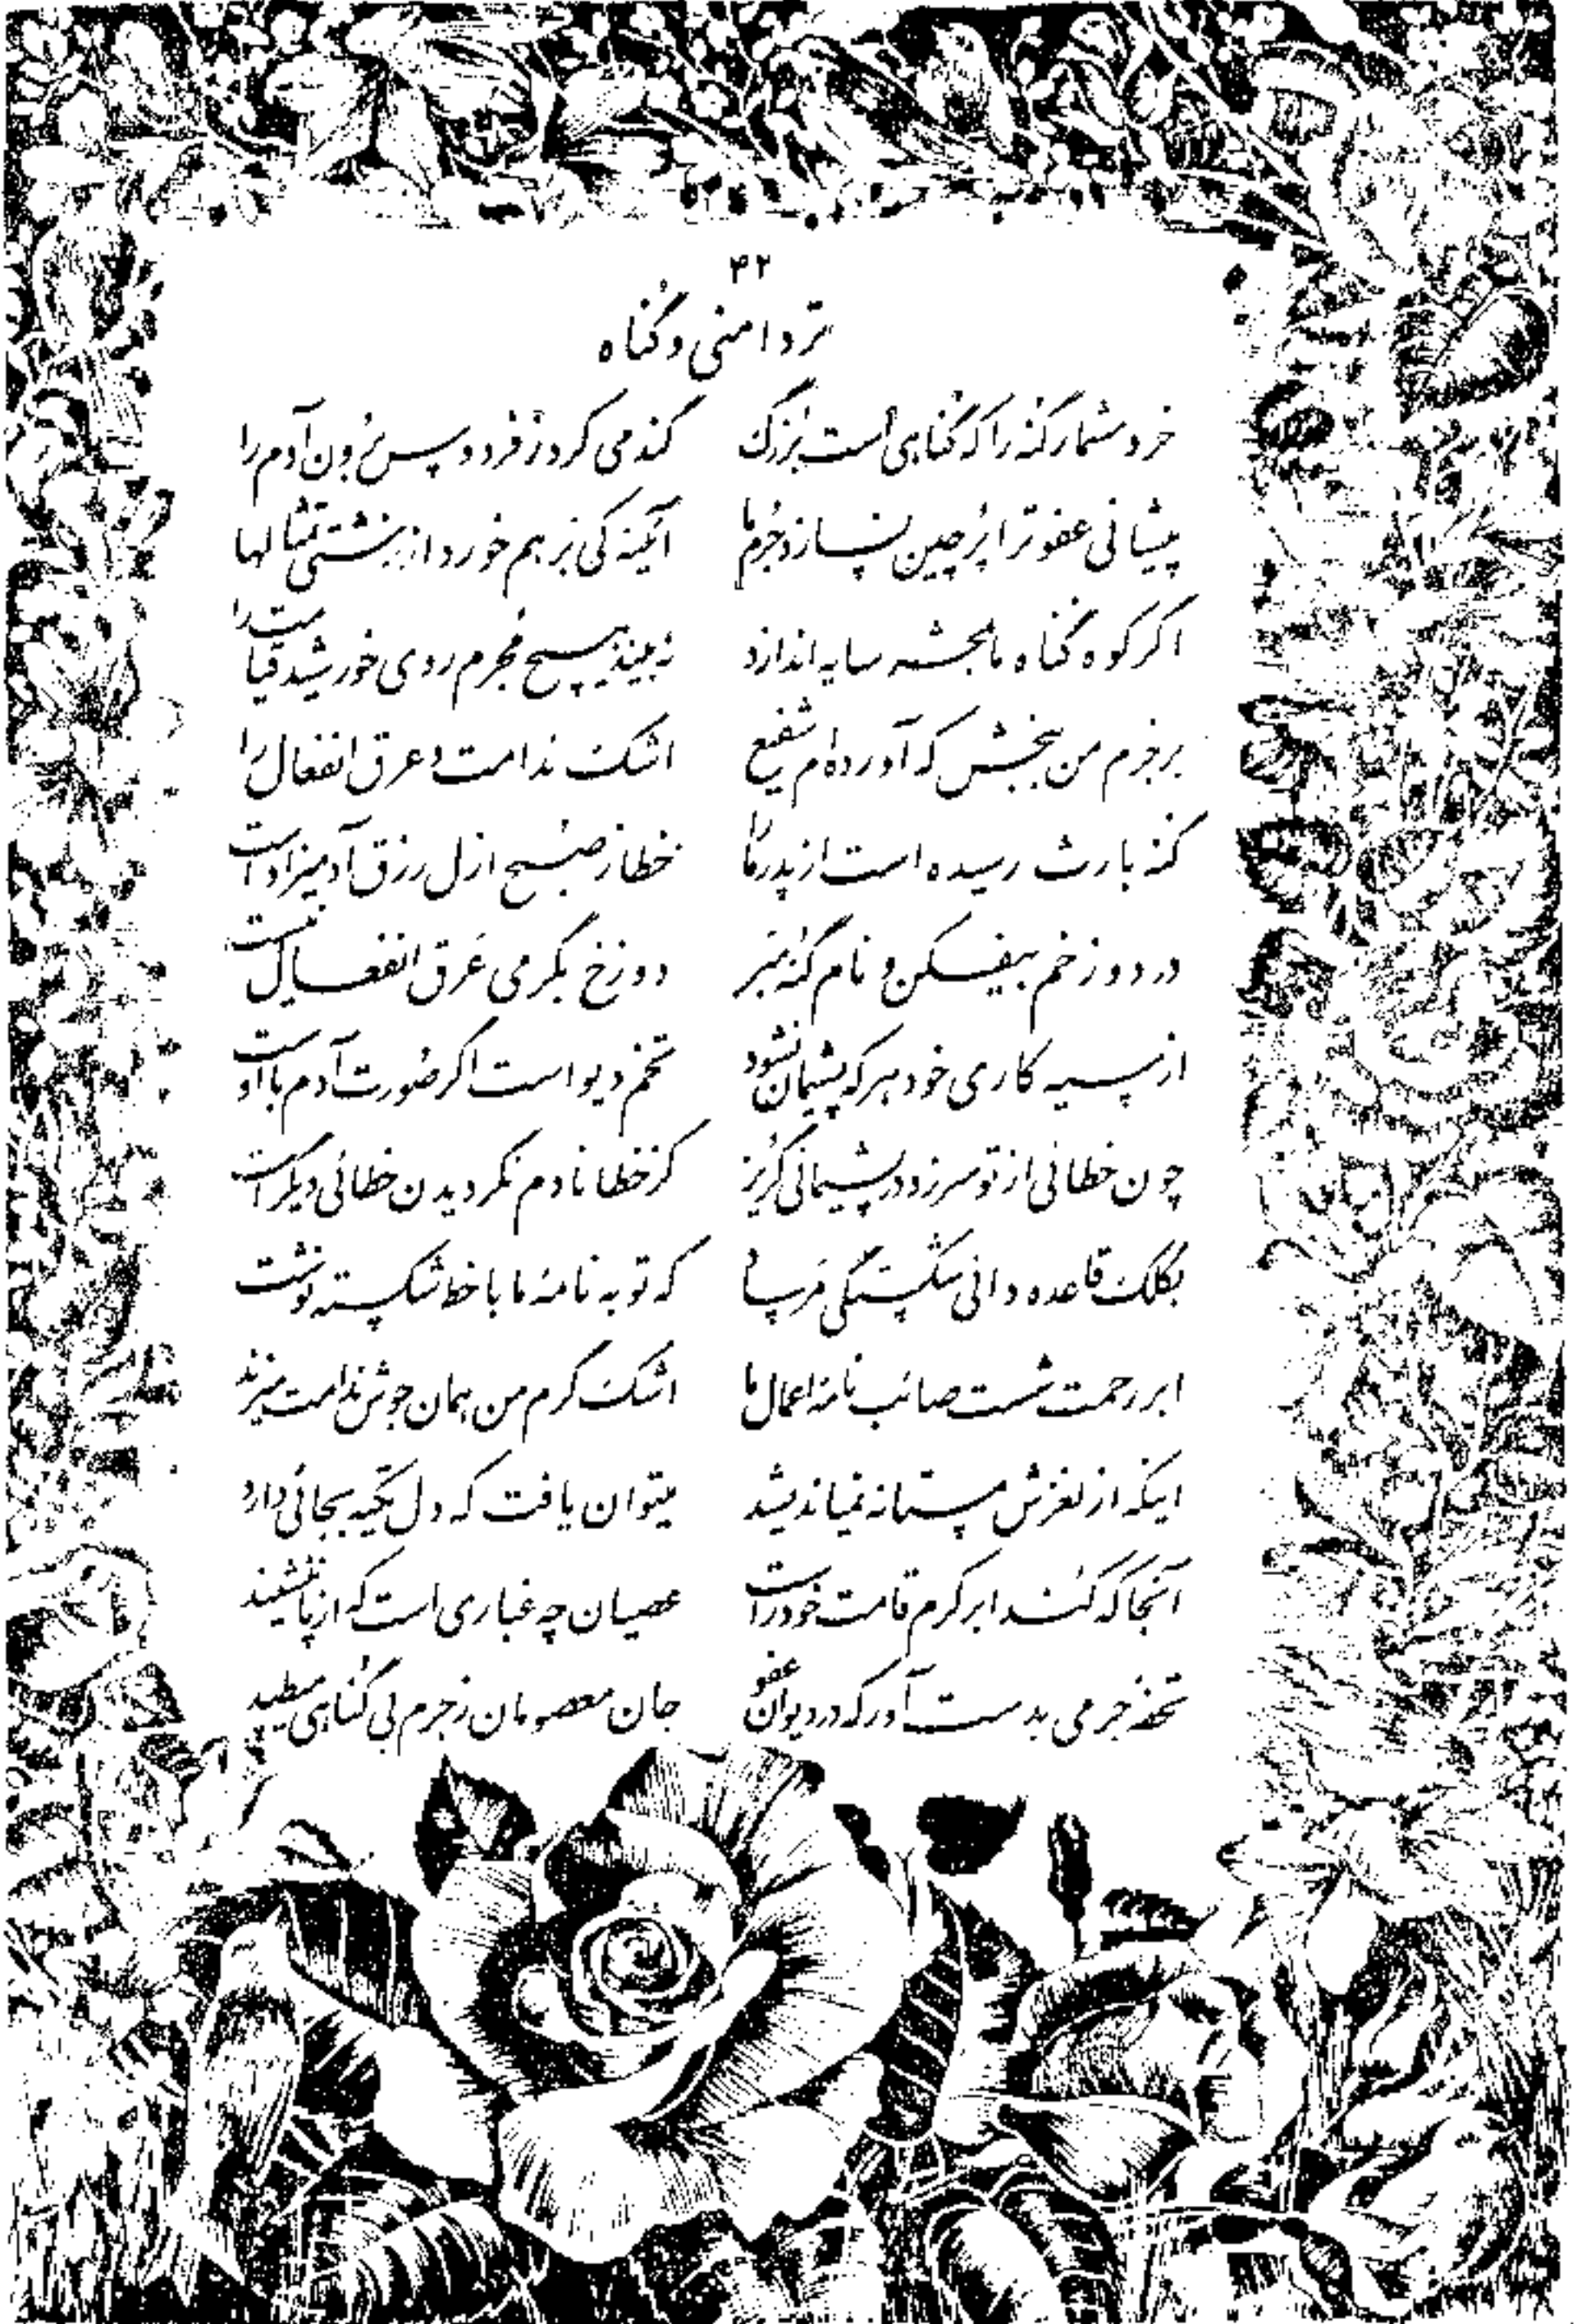 ۴۲
تردامنی و گناه
خرد مشمار گنه را که گناهی است بزرگ گندمی کرد ز فردوس برون آدم را
پیشانی عفو ترا پرچین نسازد جرم ما آئینه کی برهم خورد از زشتی تمثالها
اگر کوه گناه ما بمحشر سایه اندازد نبیند هیچ مجرم روی خورشید قیامت را
بر جرم من ببخش که آورده‌ام شفیع اشک ندامت و عرق انفعال را
گنه بارث رسیده است از پدر ما را خطا ز صبح ازل رزق آدمیزاد است
در دوزخم بیفکن و نام گنه مبر دوزخ بگرمی عرق انفعال نیست
از سیه کاری خود هر که پشیمان نشود تخم دیو است اگر صورت آدم با اوست
چون خطائی از تو سر زد در پشیمانی گریز کز خطا نادم نگردیدن خطائی دیگر است
بکلک قاعده دانی شکستگی مرساد که توبه نامهٔ ما با خط شکسته نوشت
ابر رحمت شست صائب نامهٔ اعمال ما اشک گرم من همان جوش ندامت میزند
اینکه از لغزش مستانه نمیاندیشد میتوان یافت که دل تکیه بجائی دارد
آنجا که کند ابر کرم قامت خود راست عصیان چه غباری است که از پا ننشیند
تحفهٔ جرمی بدست آور که در دیوان عفو جان معصومان ز جرم بی گناهی میطپد